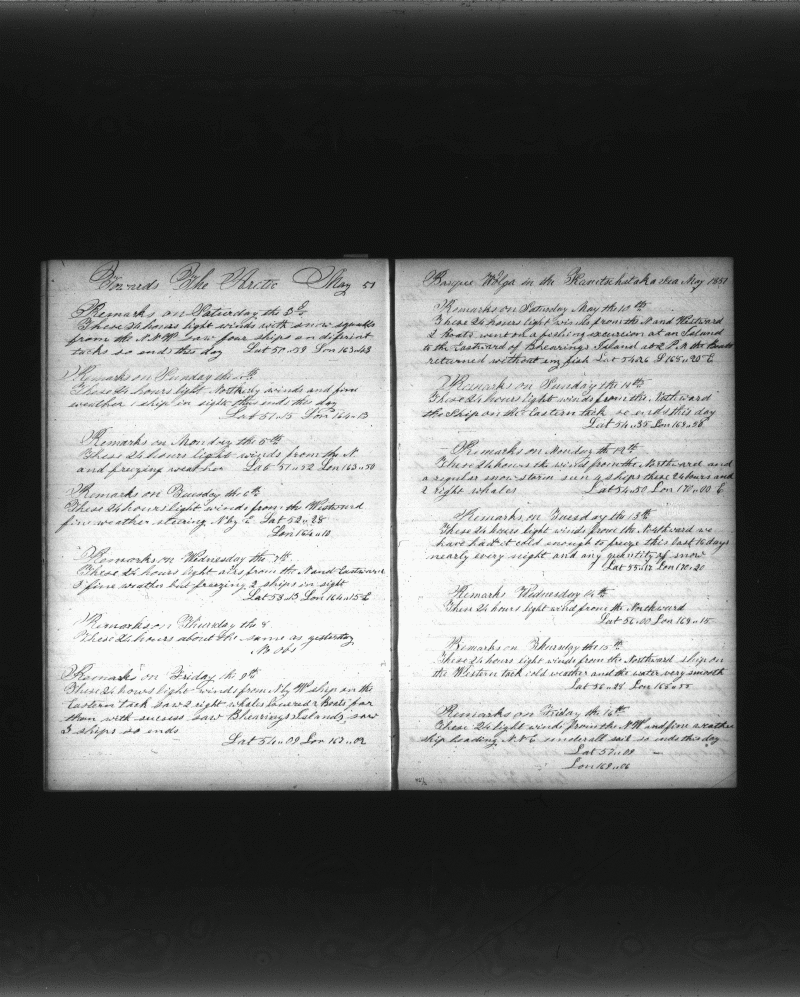 Towards The Arctic May 51
Remarks on Saturday the 3d
These 24 hours light winds with snow squalls
from the N.N.W. saw four ships on diferint
tacks so ends this day Lat 50..39 Lon 163..43
Remarks on Sunday the
These 24 hours light Notherly winds and fine
weather 1 ship in sight thus ends this day
Lat 51..15 Lon 164..13
Remarks on Monday the 5th
These 24 hours light winds from thy N.
and freezing weather Lat 51..52 Lon 163..50
Remarks on Tuesday the 6th
These 24 hours light winds from the Westward
fine weather steering N by E Lat 52..28
Lon 164..10
Remarks on Wednesday the 7th
These 24 hours light airs from the N and Eastward
& fine weather but freezing 2 ships in sight
Lat 53..13 Lon 164..15 E
Remarks on Thursday the 8
These 24 hours about the same as yesterday
No obs
Remarks on Friday the 9th
These 24 hours light winds from N by W ship on the
Eastern tack saw 2 right whales lowered 2 Boats for
them with success saw Bhearings Islands saw
3 ships so ends
Lat 54..09 Lon 167..02
Barque Wolga in the Kamtschatka sea May 1851
Remarks on Saturday May the 10th
These 24 hours light winds from the N and Westward
2 Boats went on a fishing excursion at an Island
to the Eastward of Bhearings Island at 2 P.M. the Boats
returned without eny fish Lat 54..26 L 168..20 E
Remarks on Sunday the 11th
These 24 hours light winds from the Nothward
the ship on the Eastern tack so ends this day
Lat 54..35 Lon 169..58
Remarks on Monday the 12th
These 24 hours the wind from the Northward and
a regular snow storm sun 4 ships these 24 hours and
2 right whales Lat 54..50 Lon 170..00 E
Remarks on Tuesday the 13th
These 24 hours light winds from the Northward we
have had it cold enough to freeze this last 16 days
nearly every night and any quantity of snow
Lat 55..12 Lon 170..20
Remarks Wednesday 14th
These 24 hours light wind from the Northward
Lat 56..00 Lon 169..15
Remarks on Thursday the 15th
These 24 hours light winds from the Northward ship on
the Western tack cold weather and the water very smooth
Lat 56..28 Lon 168..55
Remarks on Friday the 16th
These 24 light winds from the N.W and fine weather
ship heading N.N.E. under all sail so ends this day
Lat 57..09
Lon 169..06